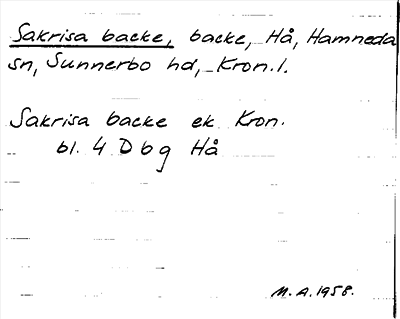 Sakrisa backe, backe, Hå, Hamneda
sn, Sunnerbo hd, Kron.l.
Sakrisa backe ek Kron.
bl. 4 D b g Hå
M. A. 1958.